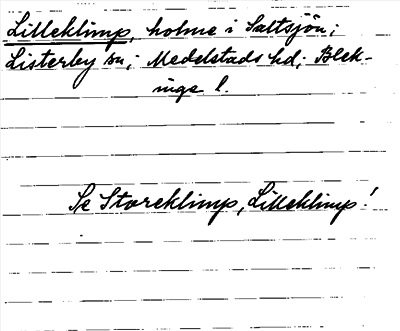 Lilleklimp, holme i Saltsjön;
Listerby sn; Medelstads hd; Blek-
inge l.
Se Storeklimp, Lilleklimp!